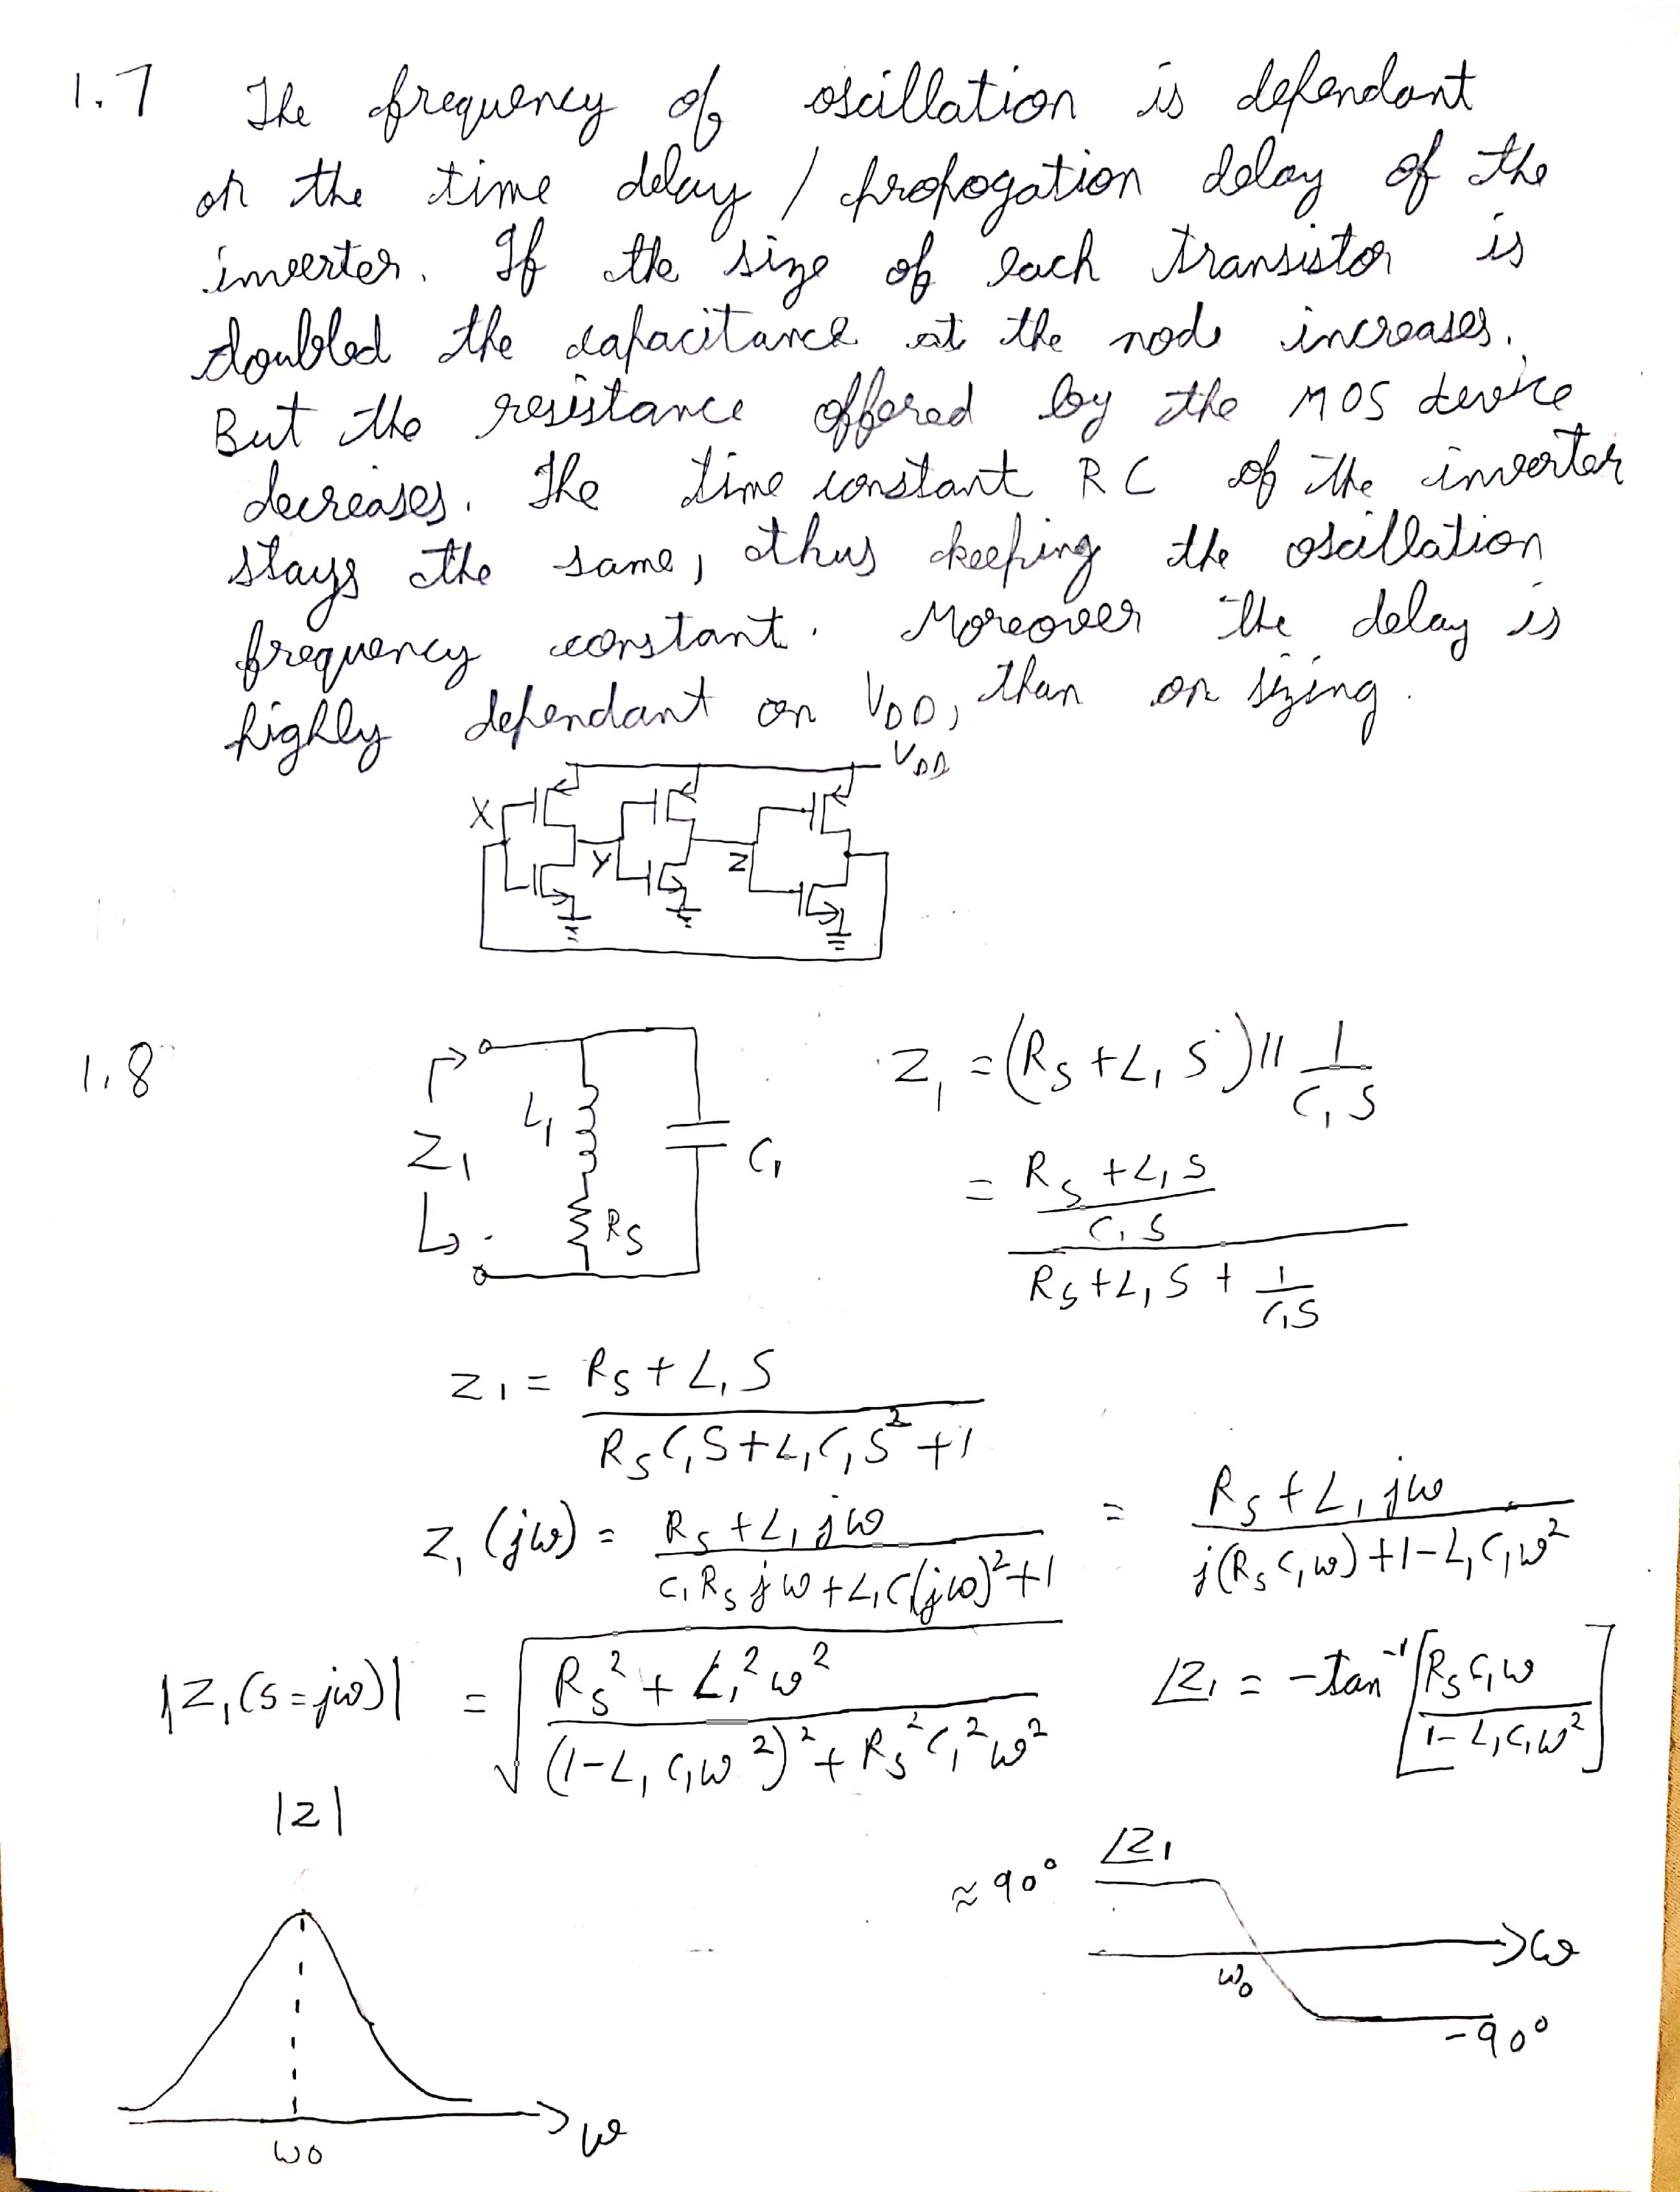 1.7 The frequency of oscillation is dependant
on the time delay / propogation delay of the
inverter. If the size of each transistor is
doubled the capacitance at the node increases.
But the resistance offered by the MOS device
decreases. The time constant RC of the inverter
stays the same, thus keeping the oscillation
frequency constant. Moreover the delay is
highly dependant on V_DD, than on sizing.
V_DD
X
Y
Z
1.8
Z_1
L_1
R_S
C_1
Z_1 = (R_S + L_1 S) || 1/(C_1 S)
= ((R_S + L_1 S)/(C_1 S)) / (R_S + L_1 S + 1/(C_1 S))
Z_1 = (R_S + L_1 S)/(R_S C_1 S + L_1 C_1 S^2 + 1)
Z_1 (jω) = (R_S + L_1 jω)/(C_1 R_S jω + L_1 C_1 (jω)^2 + 1) = (R_S + L_1 jω)/(j(R_S C_1 ω) + 1 - L_1 C_1 ω^2)
|Z_1 (S = jω)| = √((R_S^2 + L_1^2 ω^2)/((1 - L_1 C_1 ω^2)^2 + R_S^2 C_1^2 ω^2))
∠Z_1 = -tan^-1 [R_S C_1 ω/(1 - L_1 C_1 ω^2)]
|Z|
ω0
ω
∠Z_1
≈ 90°
ω
ω_0
-90°